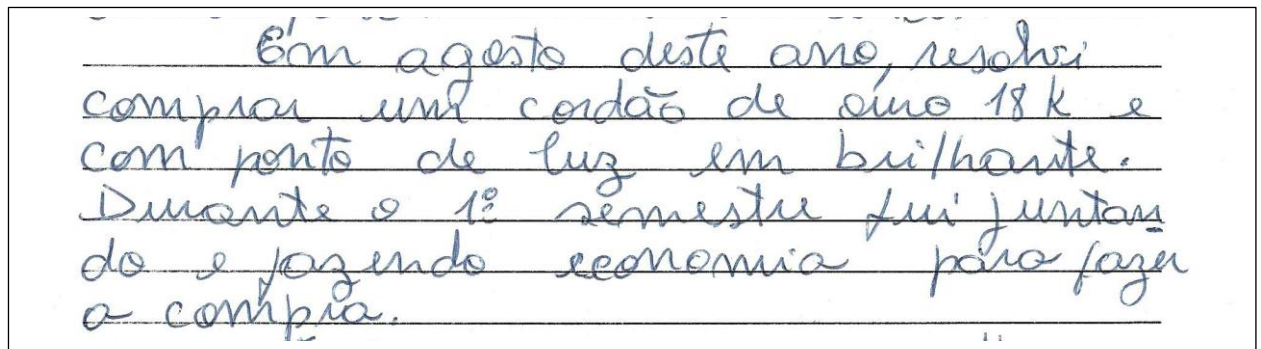 Em agosto deste ano, resolvi
comprar um cordão de ouro 18 k e
com ponto de luz em brilhante.
Durante o 1º semestre fui juntan
do e fazendo economia para fazer
a compra.